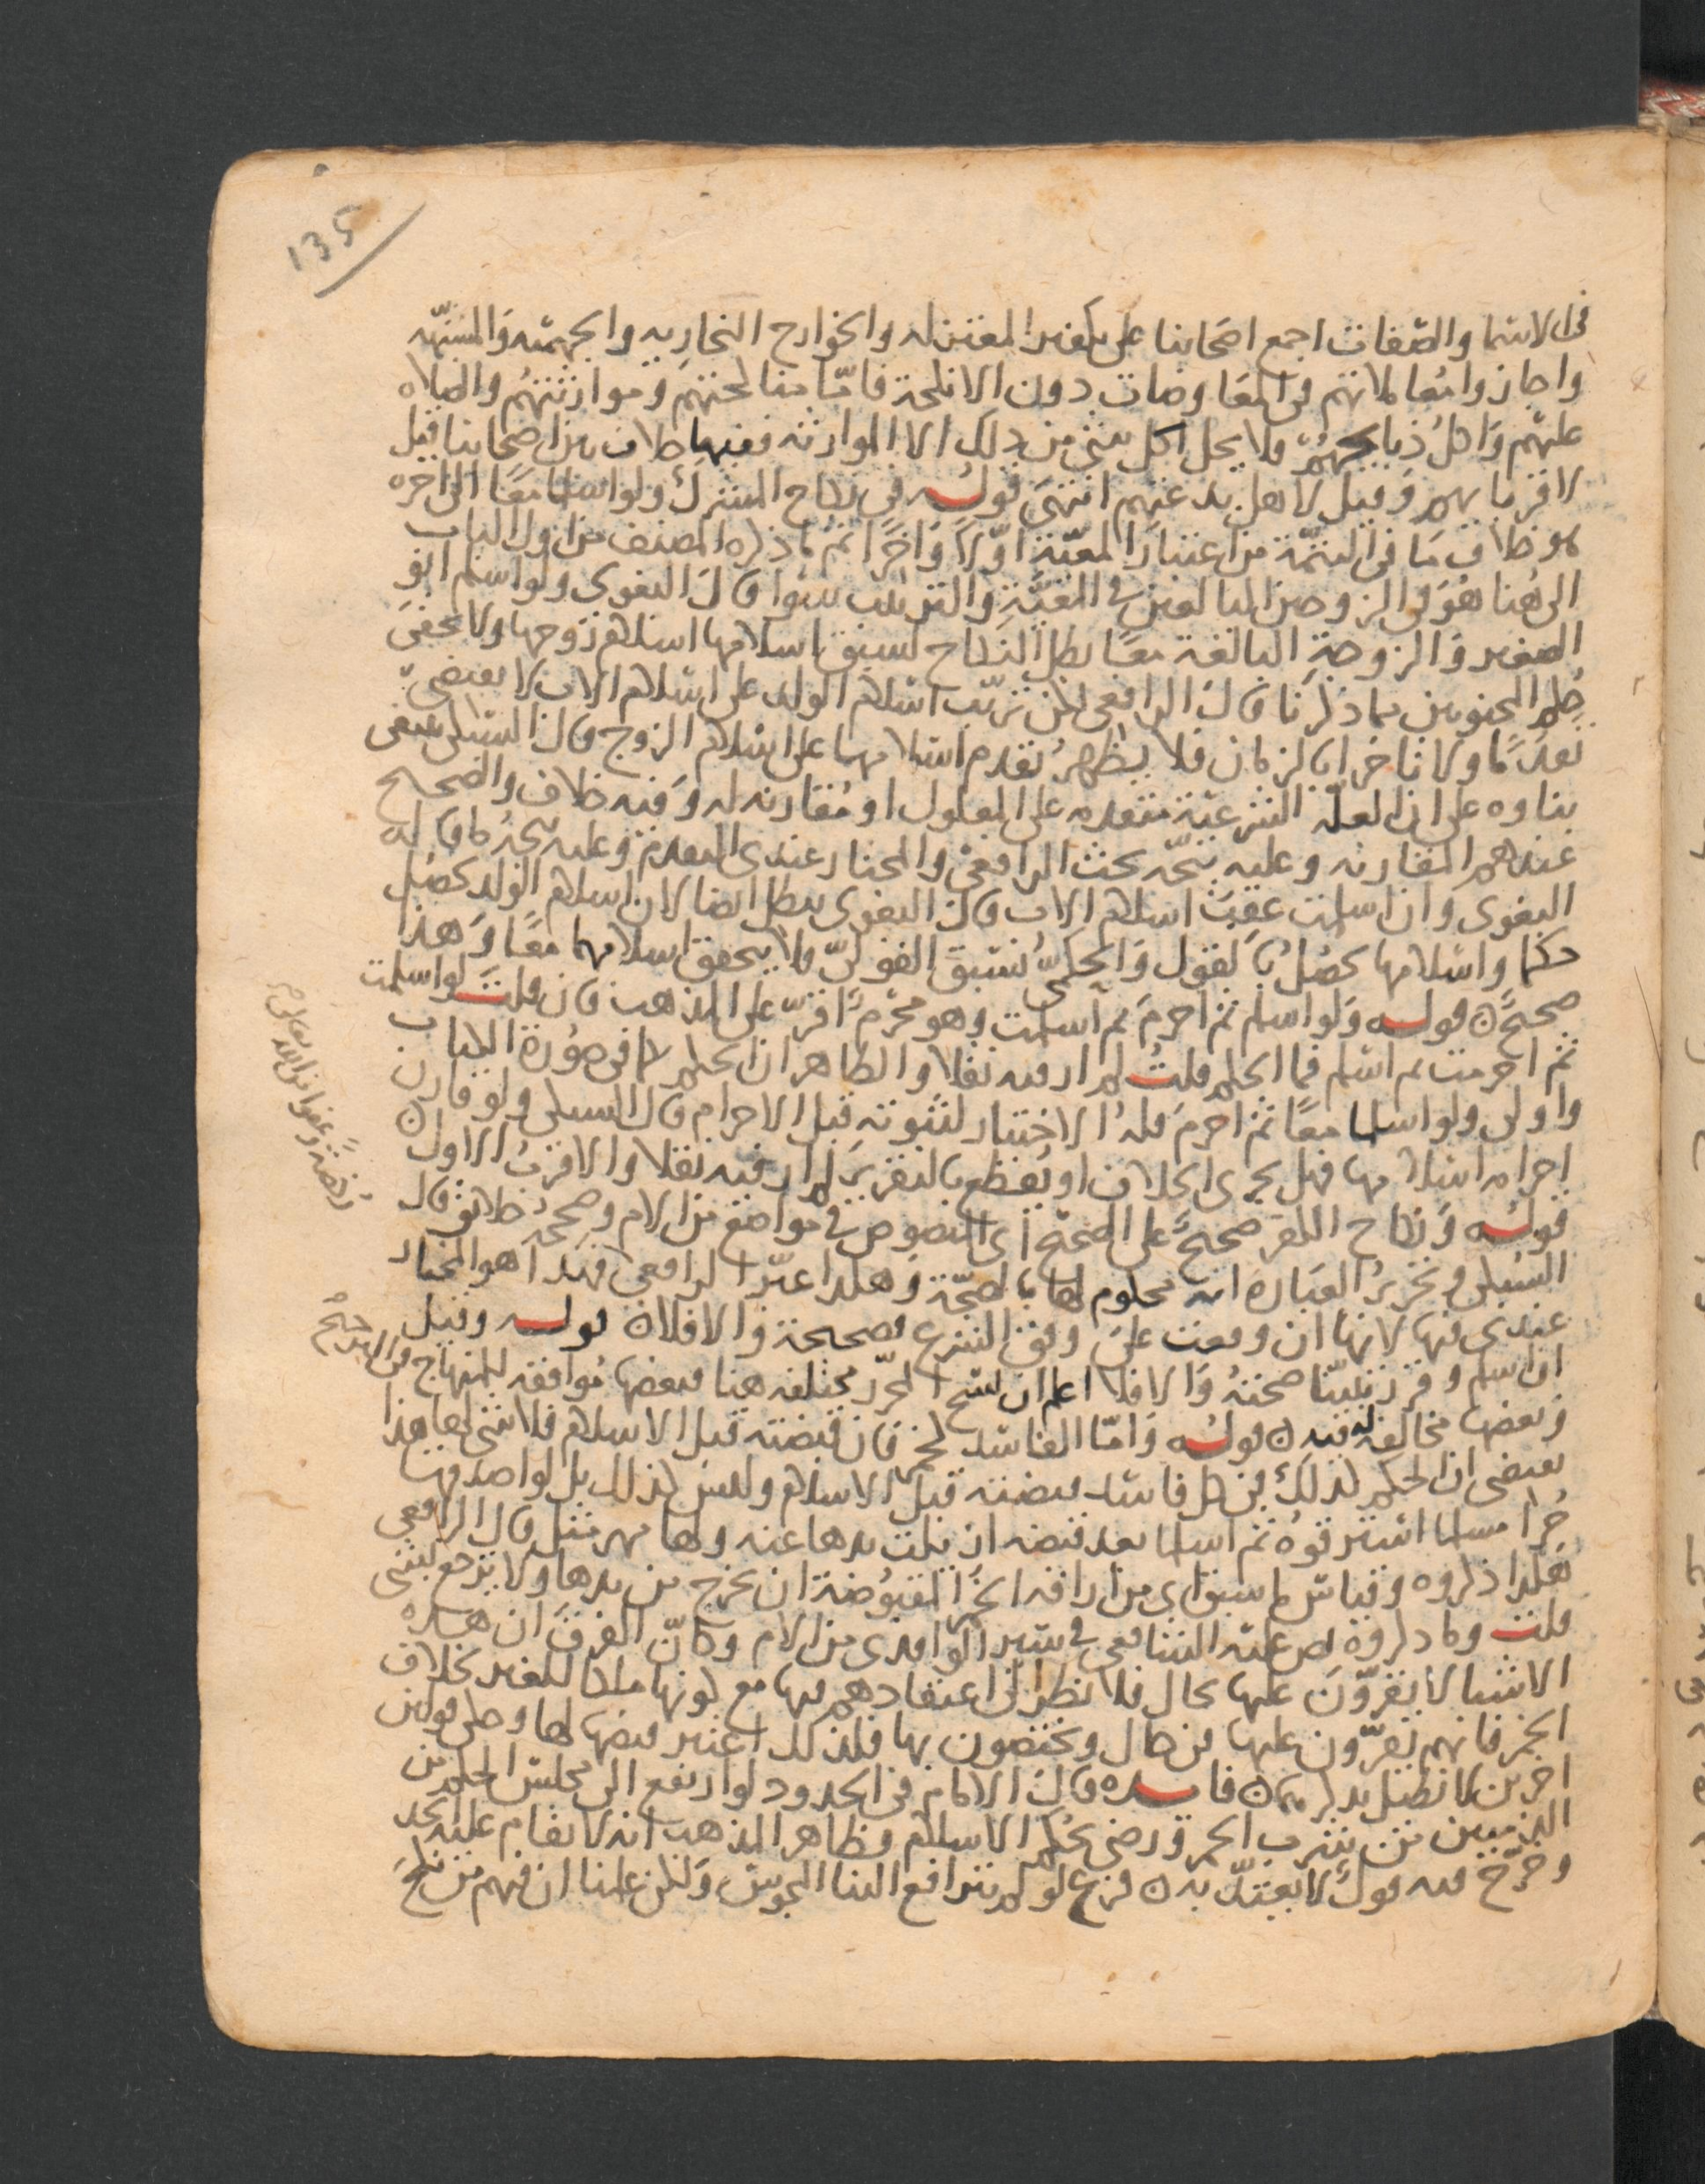 135
في الاسما والصفات اجمع اصحابنا على تكفير المعتزله والخوارج النجاريه والجهميّه والمشبّهه
واجازوا معاملاتهم في المعاوضات دون الانكحة فامّا مناكحتهم وموارثتهُم والصلاه
عليهم واكلُ ذبايحهُم فلا يحل اكل شي من ذلك الا الموارثه ففيها خلاف بين اصحابنا قيل
لاقربايهم وقيل لاهل بدعتهم انتهى قولـه في نكاح المشرك ولو اسلما معًا الى اخره
هو خلاف مَا في التتمّة من اعتبار المعيّة اوّلاً وآخرًا ثم ما ذكره المصنف من اول الباب
الى هُنا هُوَ في الزوجين البالغين في المعيّةِ والترتيب سوا قال البغوى ولو اسلم ابو
الصغير والزوجةِ البالغة معًا بطل النكاح لسبق اسلامها اسلام زوجها ولا يخفى
حكم المجنونين مما ذكرنا قال الرافعى لكن ترتّب اسلام الولد على اسلام الاب لا يقتضي
تقدمًا ولا تاخرا بالزمان فلا يظهرُ تقدم اسلامها على اسلام الزوج قال السبكى ينبغى
بناوه على ان العله الشرعيّة متقدمه على المعلول او مُقارنه له وفيه خلاف والصحيح
عندهم المقارنه وعليه يتجّه بحث الرافعي والمختار عندى التقدم وعليه يتجهُ ما قاله
البغوى وان اسلمت عقِبَ اسلام الاب قال البغوى بطل ايضا لان اسلام الولد يحصُل
حكما واسلامها يحصُلُ بالقول والحكمىّ يسبق القولىّ فلا يتحقق اسلامهما معًا وهذا
صحيحٌ قولـه ولو اسلم ثم احرمَ ثم اسلمت وهو محرمٌ اقرّ على المذهب فان قلت لو اسلمت
ثم احرمت ثم اسلم فما الحكم قلتُ لم ار فيه نقلا والظاهر ان الحكم كما في صُورة الكتاب
واولى ولو اسلما معًا ثم احرمَ فلهُ الاختيار لثبوته قبل الاحرام قال السبكى ولو قارن
احرامه اسلامها فهل يجرى الخلاف او يُقطع بالتقرير لم ار فيه نقلا والاقربُ الاول
قولـه ونكاح الكفر صحيحٌ على الصحيح اى المنصوص في مواضع من الام وصححهُ خلايق قال
السُبكى وتحريرُ العبارة انه محكوم لها بالصحّة وهكذا عبّر الرافعى فهذا هو المختار
عندى فيها لانها ان وقعت على وفق الشرع فصحيحة والا فلا قولـه وقيل
ان اسلم وقرر تبيّنا صحتهُ والا فلا اعلم ان نسخ المحرّر مختلفه هنا فبعضها مُوافقه للمنهاج في الترجيح
وبعضها مخالفه له فيه قولـه وامّا الفاسد كخمر فان قبضته قبل الاسلام فلا شى لها هذا
يقتضى ان الحكم كذلك في كل فاسد قبضته قبل الاسلام وليس كذلك بل لو اصدقها
حُرا مسلما استرقوهُ ثم اسلما بعد قبضه ازيلت يدها عنه ولها مهر مثل قال الرافعى
هكذا ذكروه وقياس ما سبق اى من اراقه الخمر المقبوُضة ان نخرج من يدها ولا يرجع بشى
قلت وما ذكروه نص عليه الشافعى في سير الواقدى من الام وكانّ الفرق ان هذه
الاشيا لا يقرّون عليها بحال فلا نظر الى اعتقادهم فيها مع كونها ملكا للغير بخلاف
الخمر فانهم يُقرّون عليها في حال ويختصون بها فلذلك اعتبر قبضها لها وحكى قولين
اخرين لا نطيل بذكرهما فايـده قال الامام في الحدود لو ارتفع الى مجلس الحكم من
الذميين من يشرب الخمر ورضى بحُكم الاسلام فظاهر المذهب انه لا يقام عليه الحد
وخرّج فيه قولٌ لا يعتدّ به فرع لو لم يترافع الينا المجوس ولكن علمنا ان فيهم من نكح